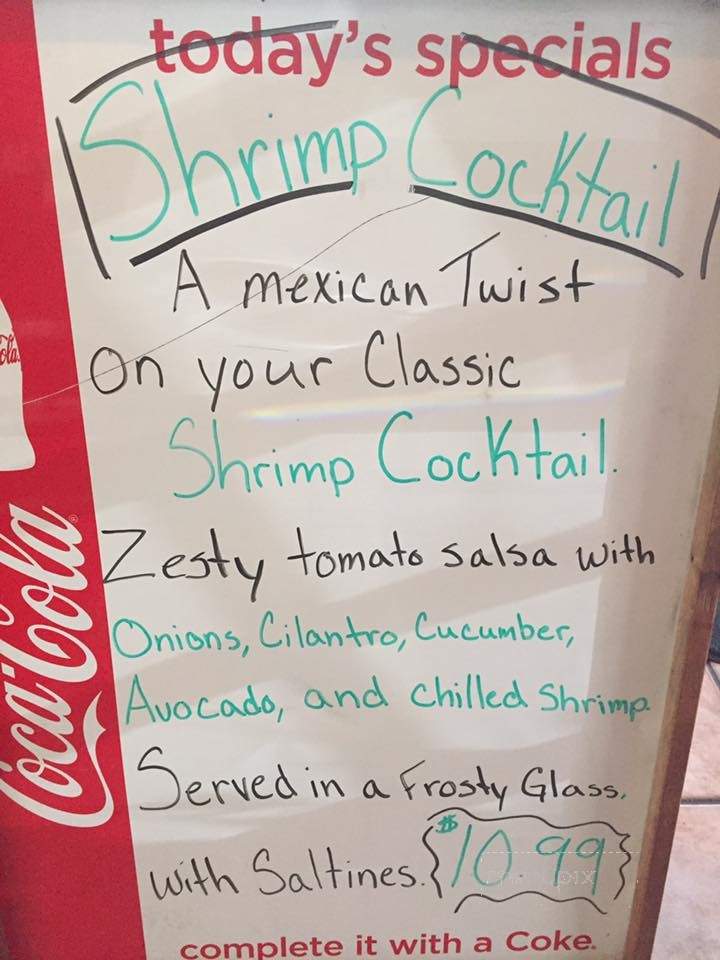 today's specials
Shrimp Cocktail
A mexican Twist
On your Classic
Shrimp Cocktail.
Zesty tomato salsa with
Onions, Cilantro, Cucumber,
Avocado, and chilled Shrimp.
Served in a Frosty Glass.
with Saltines. $10.99
complete it with a Coke.
Coca-Cola